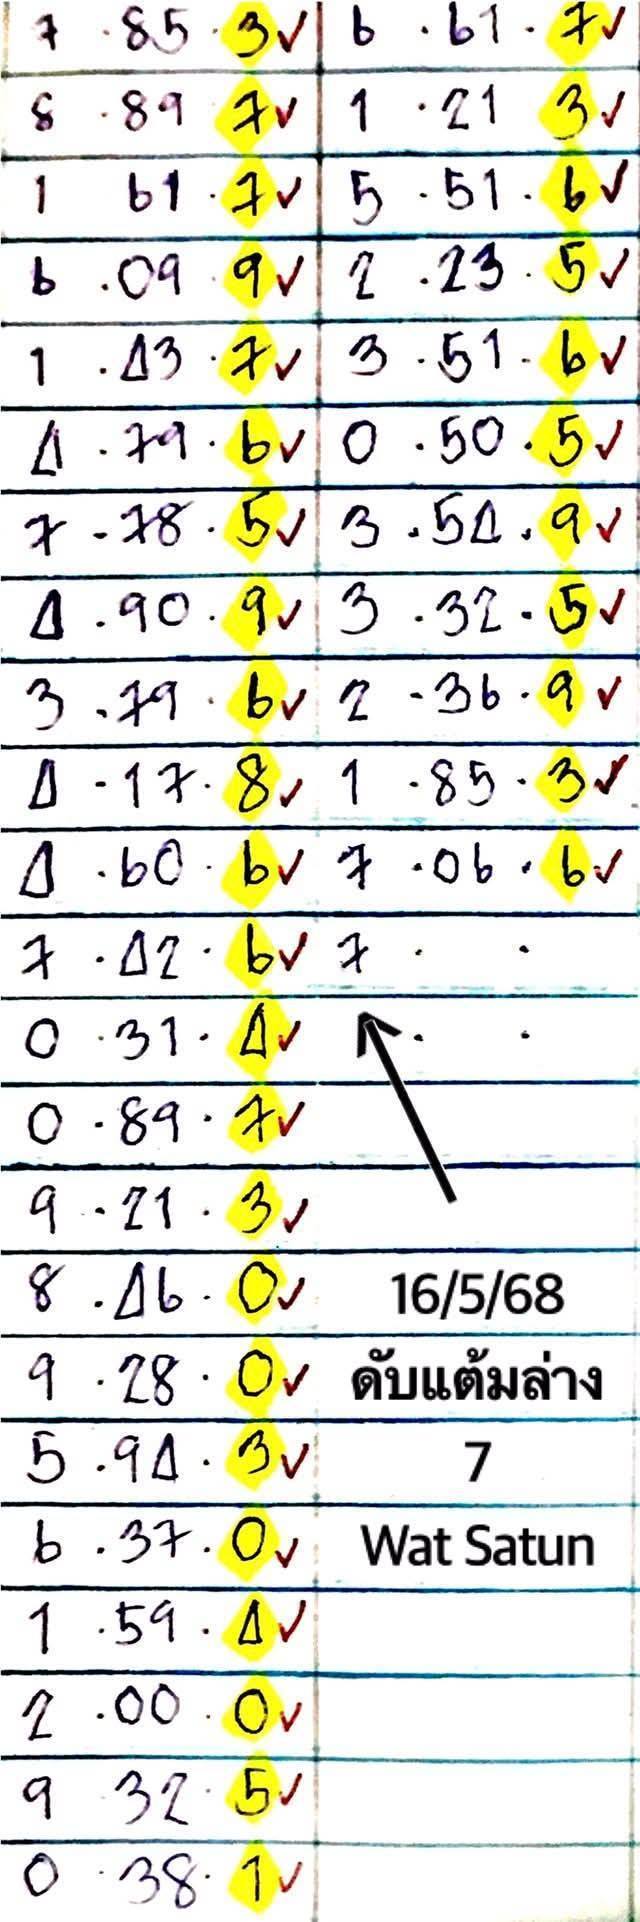 7 . 85 . 3 ✓
8 . 89 7 ✓
1 61 . 7 ✓
6 . 09 9 ✓
1 . 43 . 7 ✓
4 . 79 . 6 ✓
7 . 78 . 5 ✓
4 . 90 . 9 ✓
3 . 79 . 6 ✓
4 . 17 . 8 ✓
4 . 60 . 6 ✓
7 . 42 . 6 ✓
0 . 31 . 4 ✓
0 . 89 . 7 ✓
9 . 21 . 3 ✓
8 . 46 . 0 ✓
9 . 28 . 0 ✓
5 . 94 . 3 ✓
6 . 37 . 0 ✓
1 . 59 . 4 ✓
2 . 00 . 0 ✓
9 32 . 5 ✓
0 . 38 . 1 ✓
6 . 61 . 7 ✓
1 . 21 3 ✓
5 . 51 . 6 ✓
2 . 23 . 5 ✓
3 . 51 . 6 ✓
0 . 50 . 5 ✓
3 . 54 . 9 ✓
3 . 32 . 5 ✓
2 . 36 . 9 ✓
1 . 85 . 3 ✓
7 . 06 . 6 ✓
7 . .
. .
16/5/68
ดับแต้มล่าง
7
Wat Satun